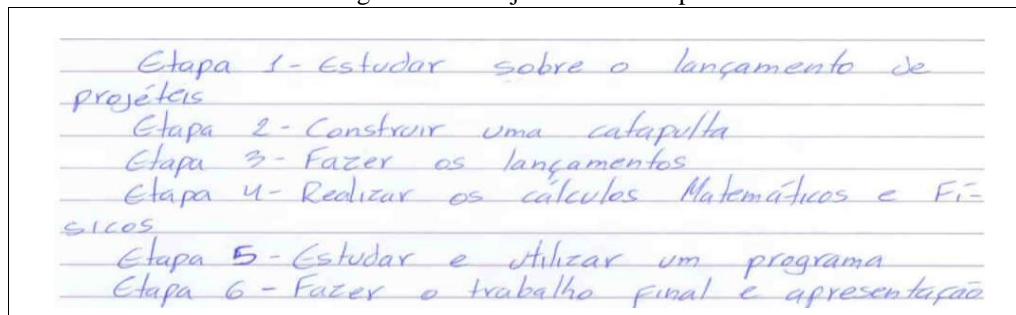 Etapa 1 - Estudar sobre o lançamento de
projéteis
Etapa 2 - Construir uma catapulta
Etapa 3 - Fazer os lançamentos
Etapa 4 - Realizar os cálculos Matemáticos e Fí-
sicos
Etapa 5 - Estudar e utilizar um programa
Etapa 6 - Fazer o trabalho final e apresentação